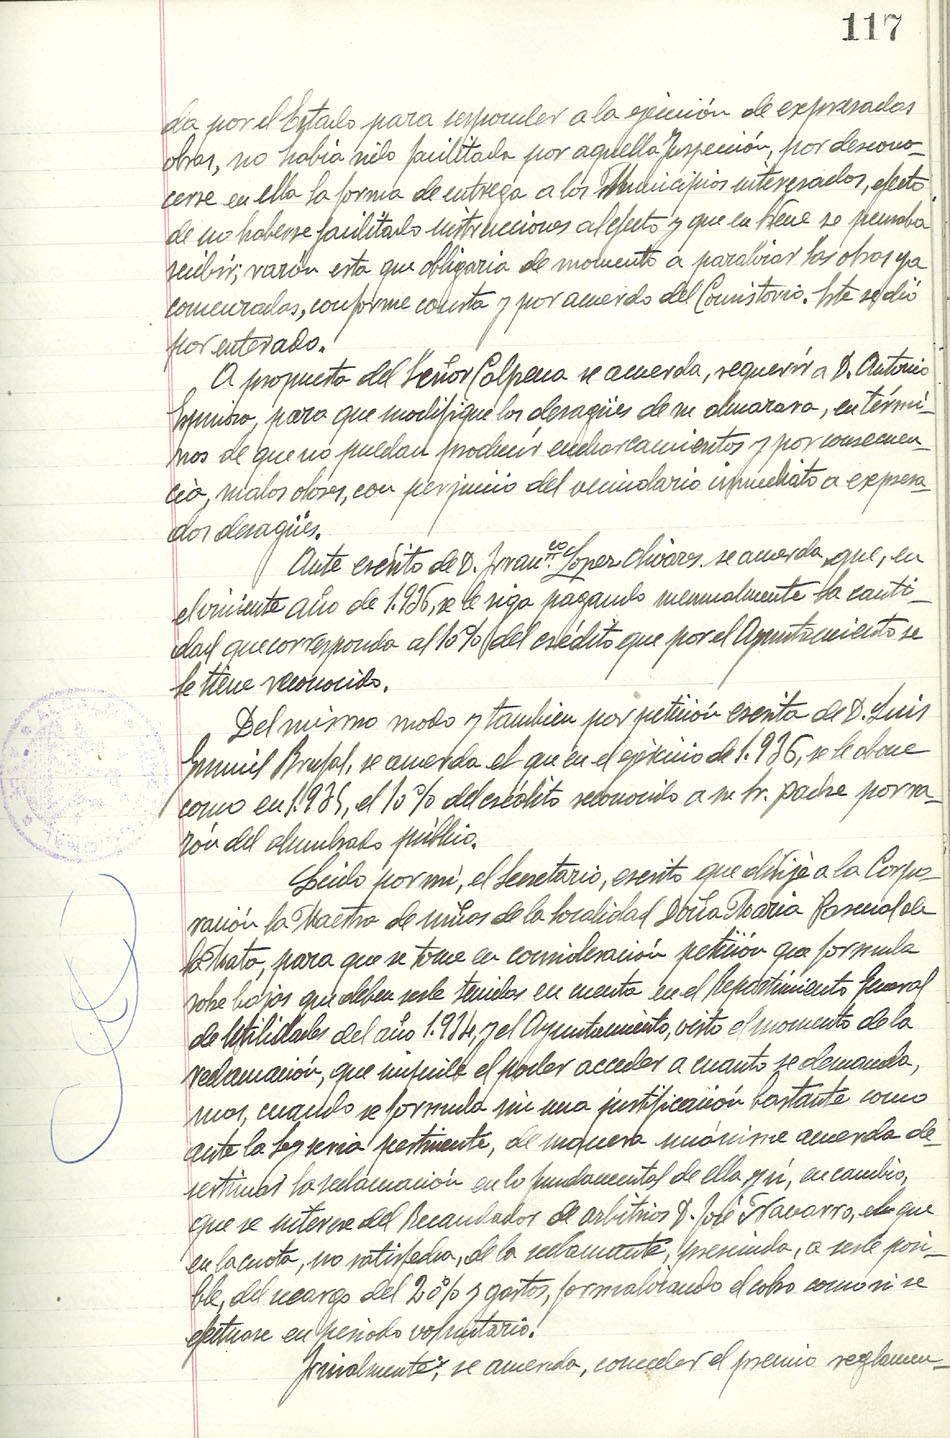 117
da por el Estado para responder a la ejecución de expresadas
obras, no había sido facilitada por aquella Inspección, por descono-
cerse en ella la forma de entrega a los Municipios interesados, efecto
de no haberse facilitado instrucciones al efecto y que en breve se pensaba
recibir; razón esta que obligaria de momento a paralizar las obras ya
comenzadas, conforme consta y por acuerdo del Consistorio. Este se dió
por enterado.
A propuesta del Señor Calpena se acuerda, requerir a D. Antonio
para que modifique los desagües de su almazara, en térmi-
nos de que no puedan producir encharcamientos y por consecuen-
cia, malos olores, con perjuicio del vecindario inmediato a expresa-
dos desagües.
Ante escrito de D. Franco. López Olivares se acuerda que, en
el viniente año de 1.936, se le siga pagando mensualmente la canti-
dad que corresponda al 10% del crédito que por el Ayuntamiento se
le tiene reconocido.
Del mismo modo y tambien por petición escrita de D. Luis
Brufal, se acuerda el que en el ejercicio de 1.936, se le abone
como en 1.935, el 10% del crédito reconocido a su Sr. padre por ra-
zón del alumbrado público.
Leido por mí, el Secretario, escrito que dirije a la Corpo-
ración la Maestra de niños de la localidad Doña Maria Pascual de
la Mata, para que se tome en consideración petición que formula
sobre bajas que deben serle tenidas en cuenta en el Repartimiento General
de Utilidades del año 1.934, y el Ayuntamiento, visto el momento de la
reclamación, que impide el poder acceder a cuanto se demanda,
mas, cuando se formula sin una justificación bastante como
ante la Ley seria pertinente, de manera unánime acuerda de-
sestimar la reclamación en lo fundamental de ella y sí, en cambio,
que se interese del Recaudador de arbitrios D. José Navarro, el que
en la cuota, no satisfecha, de la reclamante, prescinda, a serle posi-
ble, del recargo del 20% y gastos, formalizando el cobro como si se
efectuase en periodo voluntario.
Finalmente, se acuerda, conceder el premio reglamen-